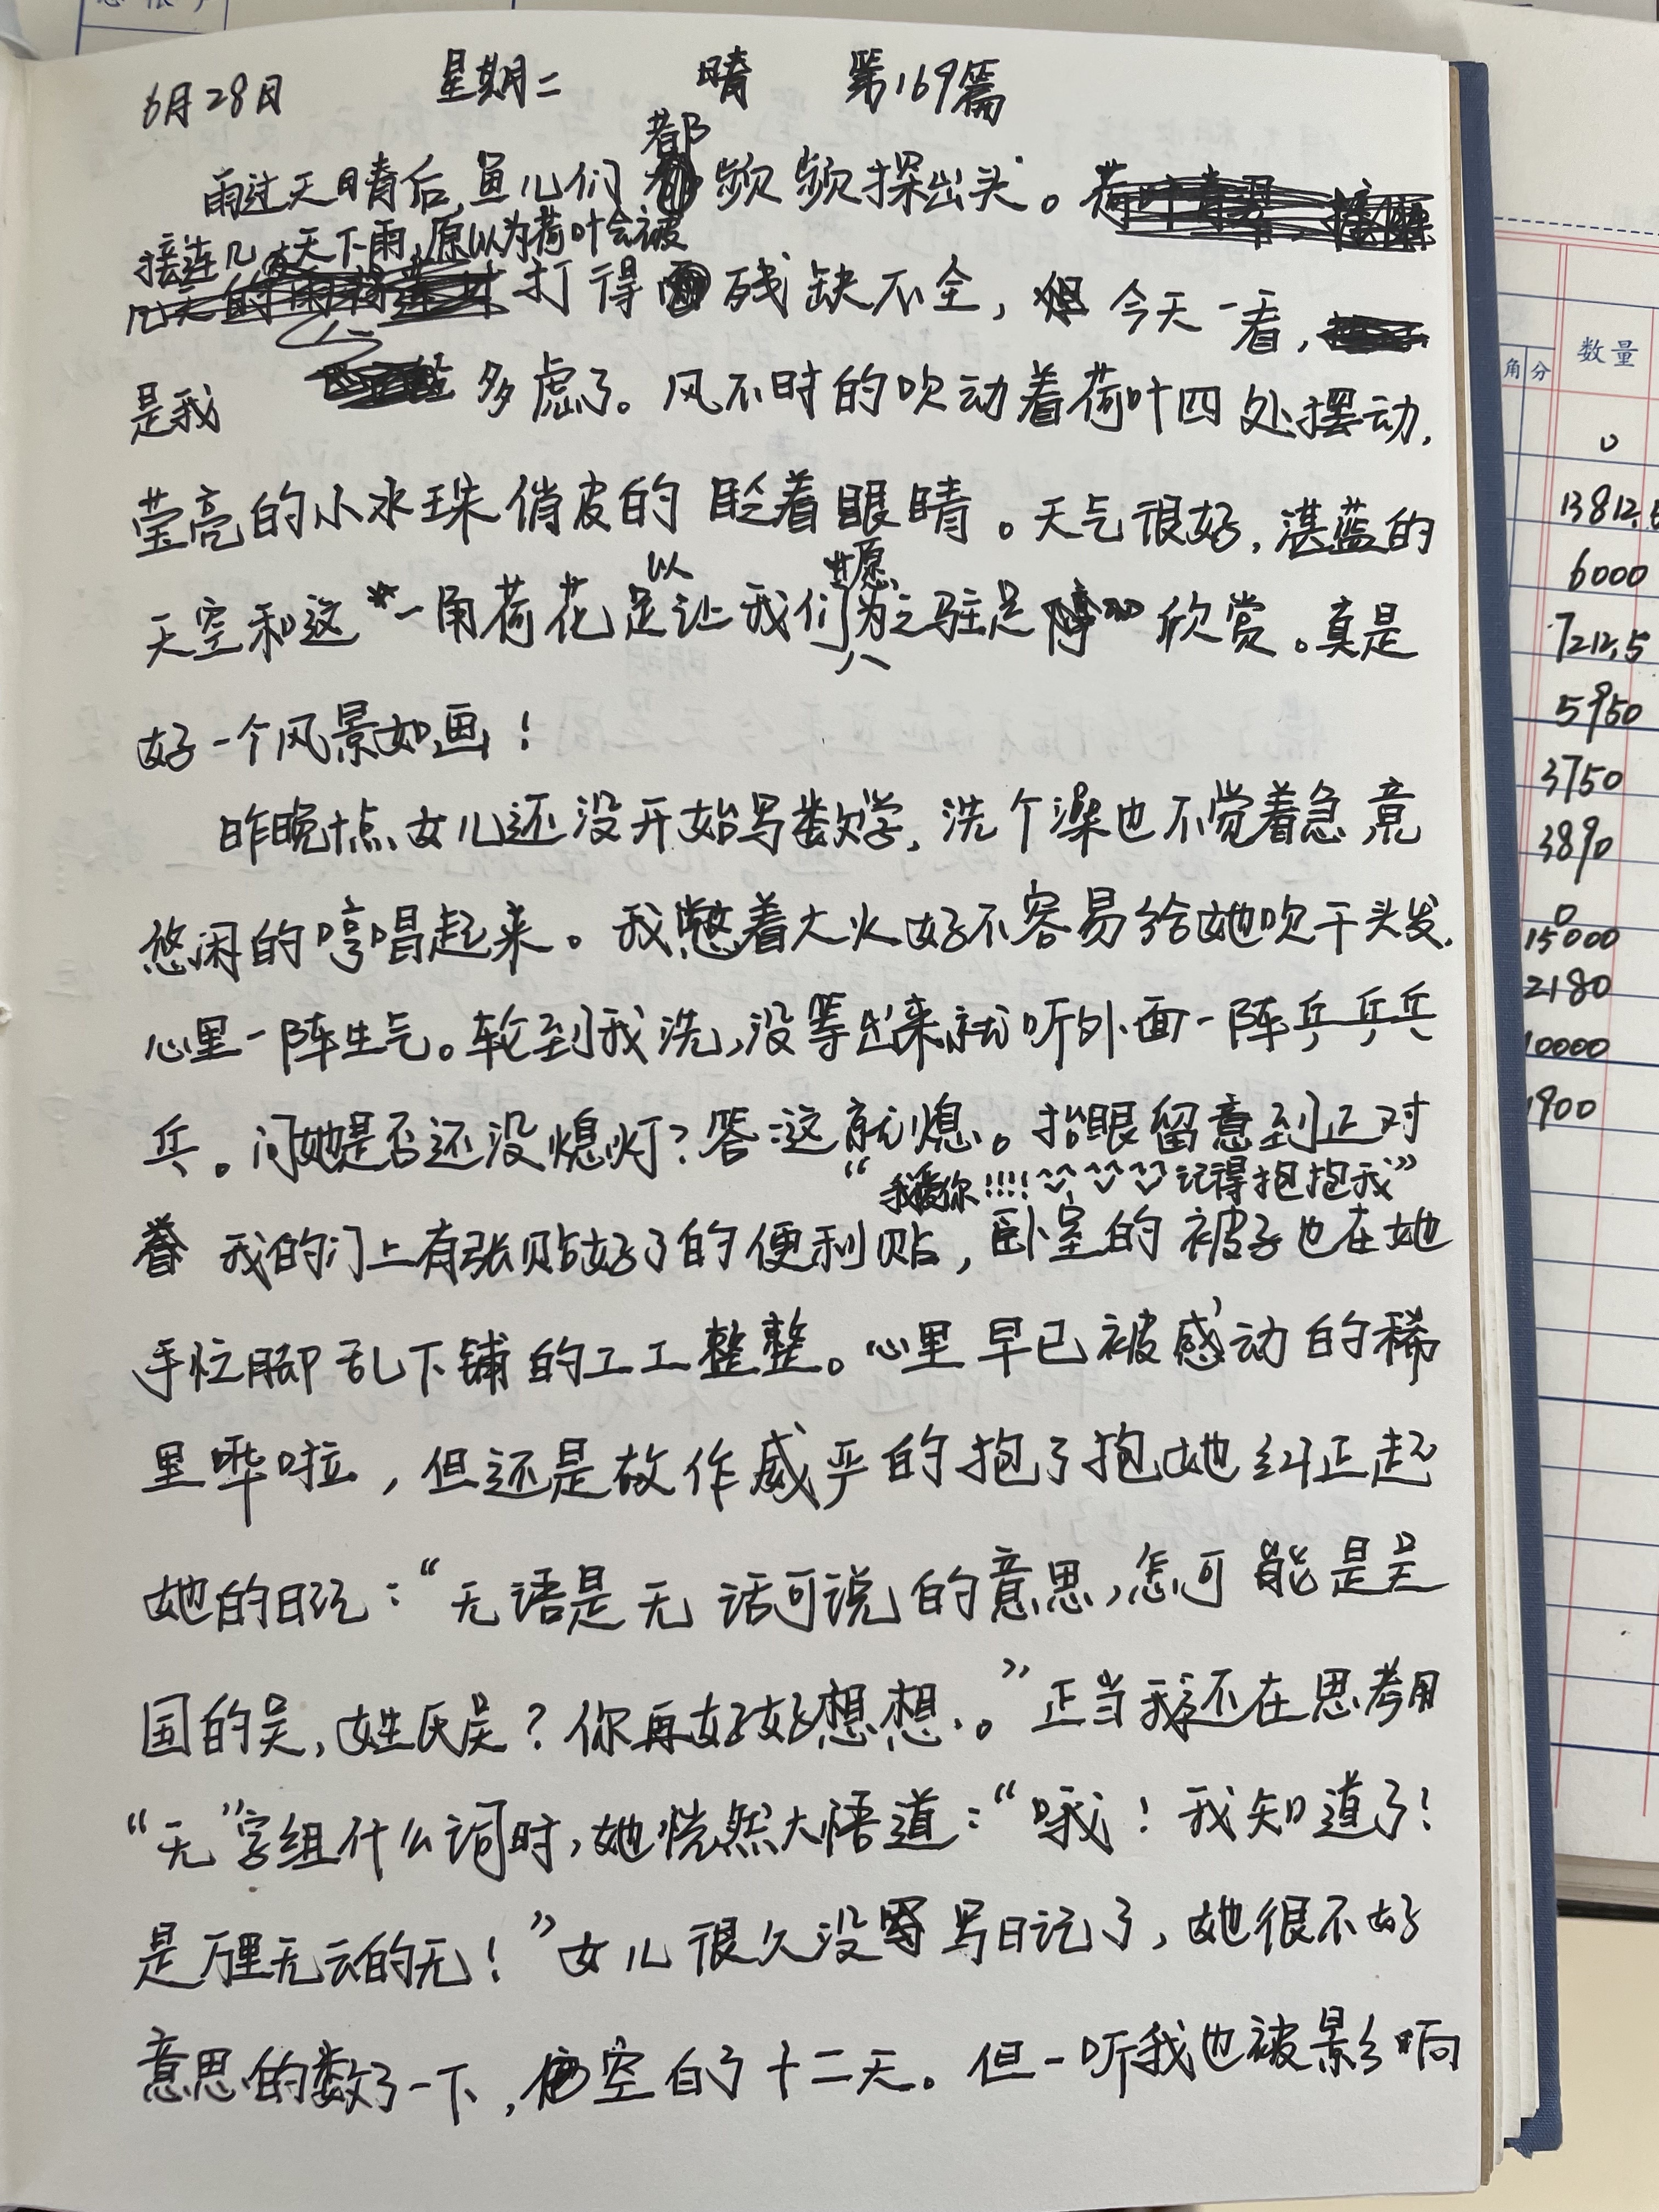 6月28日 星期二 晴 第169篇
雨过天晴后,鱼儿们都频频探出头。
接连几天下雨,原以为荷叶会被
打得残缺不全,但今天一看,
是我多虑了。风不时的吹动着荷叶四处摆动,
莹亮的小水珠俏皮的眨着眼睛。天气很好,湛蓝的
天空和这一角荷花足以让我们愿为之驻足欣赏。真是
好一个风景如画!
昨晚十点女儿还没开始写数学,洗个澡也不觉着急竟
悠闲的哼唱起来。我憋着大火好不容易给她吹干头发,
心里一阵生气。轮到我洗,没等出来就听外面一阵乒乒乓
乓。问她是否还没熄灯?答:这就熄。抬眼留意到正对
“我爱你!!!! 记得抱抱我”
着我的门上有张贴好了的便利贴,卧室的被子也在她
手忙脚乱下铺的工工整整。心里早已被感动的稀
里哗啦,但还是故作威严的抱了抱她纠正起
她的日记:“无语是无话可说的意思,怎可能是吴
国的吴,姓氏吴?你再好好想想.。”正当我还在思考用
“无”字组什么词时,她恍然大悟道:“哦!我知道了!
是万里无云的无!”女儿很久没写日记了,她很不好
意思的数了一下,空白了十二天。但一听我也被影响
数量
角 分
0
13812.
6000
7212.5
5950
3750
3890
0
15000
2180
10000
1900